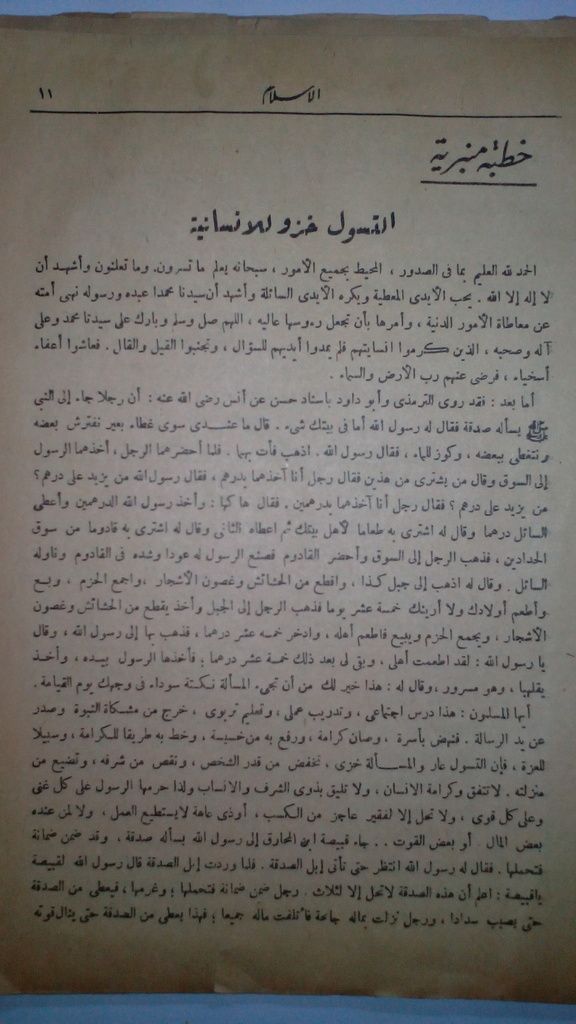 ١١
الاسلام
خطبة منبرية
التسول خزو للانسانية
الحمد لله العليم بما فى الصدور ، المحيط بجميع الأمور ، سبحانه يعلم ما تسرون. وما تعلنون وأشهد أن
لا إله إلا الله . يحب الأيدى المعطية ويكره الأيدى السائلة وأشهد أن سيدنا محمدا عبده ورسوله نهى أمته
عن معاطاة الأمور الدنية ، وأمرها بأن تجعل رءوسها عاليه ، اللهم صل وسلم وبارك على سيدنا محمد وعلى
آله وصحبه ، الذين كرموا انسانيتهم فلم يمدوا أيديهم للسؤال ، وتجنبوا القيل والقال . فعاشوا أعفاء
أسخياء ، فرضى عنهم رب الأرض والسماء .
أما بعد : فقد روى الترمذى وأبو داود باسناد حسن عن أنس رضى الله عنه : أن رجلا جاء إلى النبي
ﷺ يسأله صدقة فقال له رسول الله أما فى بيتك شىء . قال ما عندى سوى غطاء بعير نفترش بعضه
ونتغطى ببعضه ، وكوز للماء ، فقال رسول الله . اذهب فأت بهما . فلما أحضرهما الرجل ، أخذهما الرسول
إلى السوق وقال من يشترى من هذين فقال رجل أنا آخذهما بدرهم ، فقال رسول الله من يزيد على درهم ؟
من يزيد على درهم ؟ فقال رجل أنا آخذهما بدرهمين . فقال ها كها : وأخذ رسول الله الدرهمين وأعطى
السائل درهما وقال له اشترى به طعاما لأهل بيتك ثم اعطاه الثانى وقال له اشترى به قادوما من سوق
الحدادين ، فذهب الرجل إلى السوق وأحضر القادوم فصنع الرسول له عودا وشده فى القادوم وناوله
السائل . وقال له اذهب إلى جبل كذا ، واقطع من الحشائش وغصون الأشجار ، واجمع الحزم ، وبع
وأطعم أولادك ولا أرينك خمسة عشر يوما فذهب الرجل إلى الجبل وأخذ يقطع من الحشائش وغصون
الأشجار ، ويجمع الحزم ويبيع فاطعم أهله ، وادخر خمسه عشر درهما ، فذهب بها إلى رسول الله ، وقال
يا رسول الله : لقد اطعمت أهلى ، وبقى لى بعد ذلك خمسة عشر درهما ؛ فأخذها الرسول بيده ، وأخذ
يقلبها ، وهو مسرور ، وقال له : هذا خير لك من أن تجىء المسألة نكتة سوداء فى وجهك يوم القيامة .
أيها المسلمون : هذا درس اجتماعى ، وتدريب عملى ، وتعليم تربوى ، خرج من مشكاة النبوة وصدر
عن يد الرسالة . فنهض بأسرة ، وصان كرامة ، ورفع به من خسيسة ، وخط به طريقا للكرامة ، وسبيلا
للعزة ، فإن التسول عار والمسألة خزى ، تخفض من قدر الشخص ، وتنقص من شرفه ، وتضيع من
منزلته . لا تتفق وكرامة الانسان ، ولا تليق بذوى الشرف والانساب ولذا حرمها الرسول على كل غنى
وعلى كل قوى ، ولا تحل إلا لفقير عاجز من الكسب ، أو ذى عاهة لا يستطيع العمل ، ولا لمن عنده
بعض المال أو بعض القوت . . جاء قبيصة ابن المخارق إلى رسول الله يسأله صدقة . وقد ضمن ضمانة
فتحملها . فقال له رسول الله انتظر حتى تأتى إبل الصدقة . فلما وردت إبل الصدقة قال رسول الله لقبيصة
ياقبيصة : اعلم أن هذه الصدقة لا تحل إلا لثلاث . رجل ضمن ضمانة فتحملها ؛ وغرمها ، فيعطى من الصدقة
حتى يصيب سدادا ، ورجل نزلت بماله جاعة فأتلفت ماله جميعا ؛ فهذا يعطى من الصدقة حتى ينال قوته